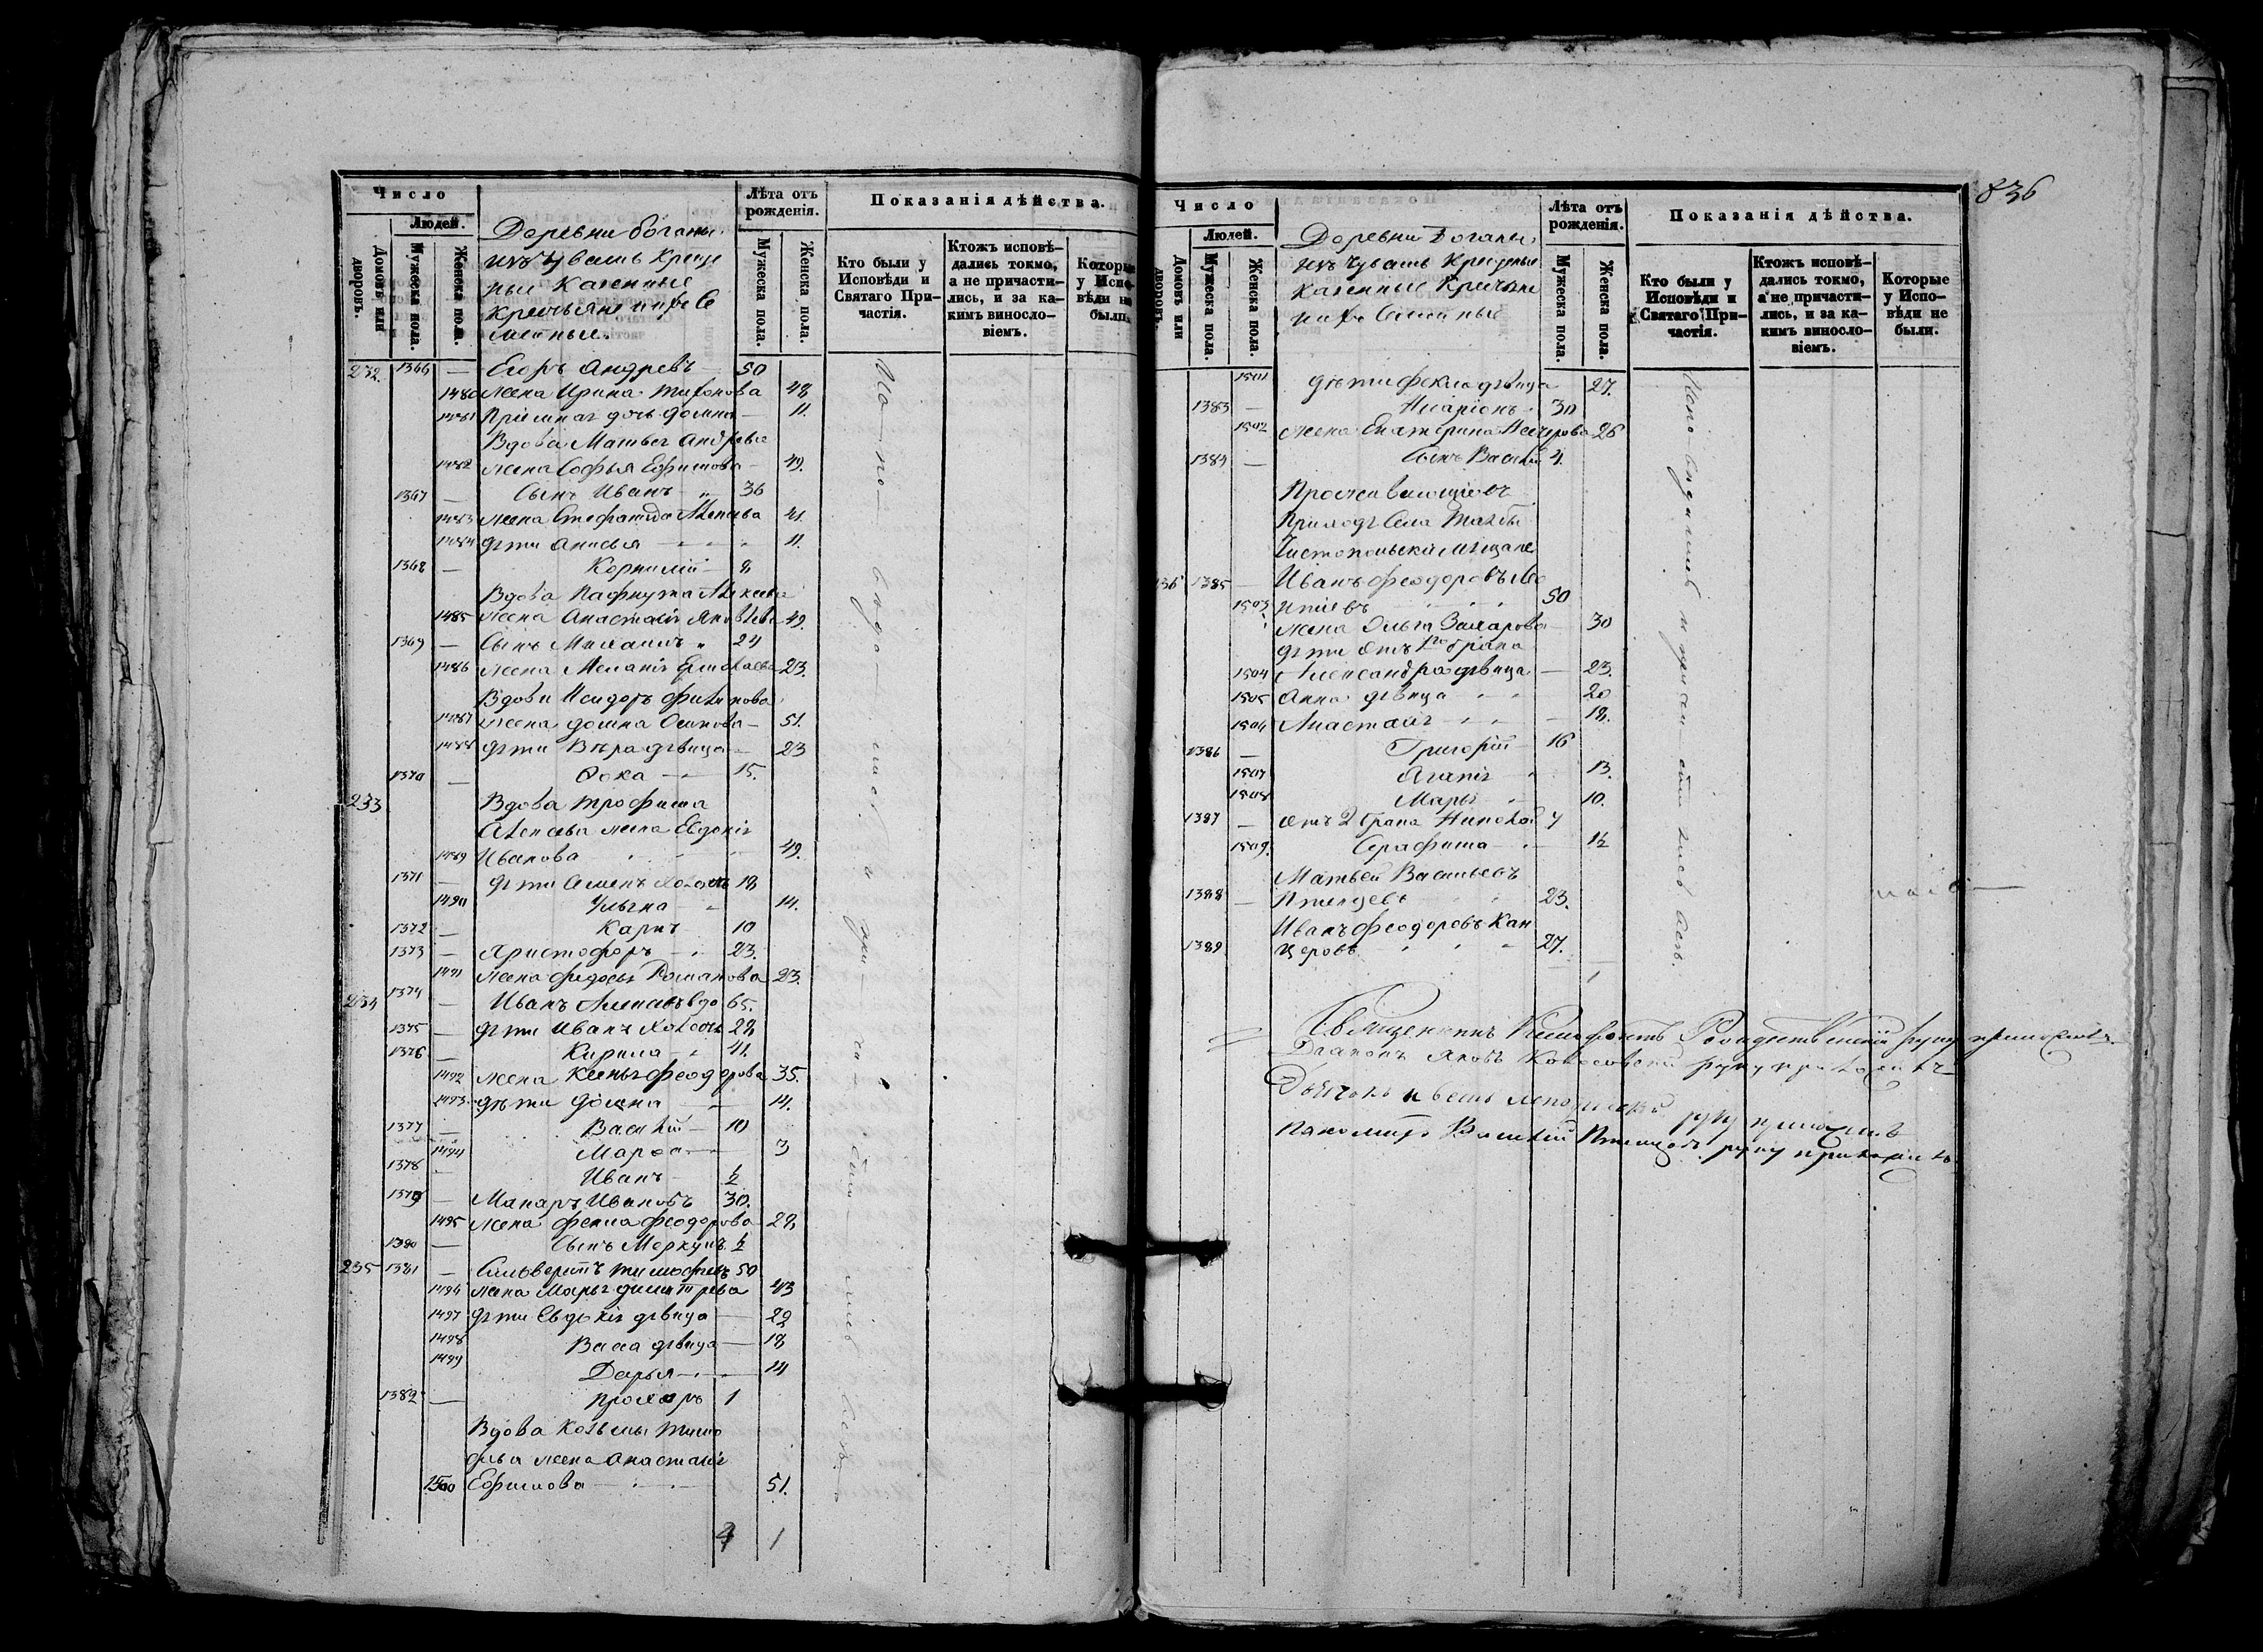 Число
Людей.
Домовъ или дворовъ.
Мужеска пола.
Женска пола.
Деревни Боганы
изъ чувашъ Креще
ные Казенные
Крестьяне и ихъ Се
мейные.
Лѣта отъ рожденія.
Мужеска пола.
Женска пола.
Показанія дѣйства.
Кто были у Исповѣди и Святаго Причастія.
Ктожъ исповѣдались токмо, а не причастились, и за какимъ винословіемъ.
Которые у Исповѣди не были.
232. 1366 — Егоръ Андреевъ 50
1480 жена Ирина Тихонова 48
1481 Пріемная дочь Домна — 11.
Вдова Матвея Андреева
1482 жена Софья Ефимова — 49.
1367 — Сынъ Иванъ 36
1483 жена Стефанида Алексеева 41.
1484 дѣти Анисья 11.
1368 — Корнилій — 8
Вдова Пафнутія Алексеева
1485 жена Анастасія Яковлева 49.
1369 — Сынъ Михаилъ 24
1486 жена Меланія Ермолаева 23.
Вдова Исидора Филипова
1487 жена Домна Осипова — 51.
1488 дѣти Вѣра дѣвица 23
1370 — Фока 15.
233 Вдова Трофима
Алексеева жена Евдокія
1489 Иванова 49.
1371 — дѣти Семенъ холостъ 18
1490 Ульяна 14.
1372 — Карпъ 10
1373 — Христофоръ 23.
1491 жена Федосья Романова 23.
234 1374 — Иванъ вдо 65.
1375 — дѣти Иванъ Холостъ 28
1376 — Кирила 41.
1492 жена Феодорова 35.
1493 дѣти Домна 14.
1377 — Василій — 10
1494 Марѳа 3
1378 — Иванъ ½
1379 — Макаръ Ивановъ 30.
1495 жена Фекла Феодорова 28
1380 — Сынъ Меркулъ ½
235 1381 — Сильверстъ Тимофеевъ 50
1496 жена Марья Дмитрева 43
1497 дѣти Евдокія дѣвица — 22
1498 Васса дѣвица — 18
1499 Дарья 14
1382 — Прохоръ 1
Вдова Козьмы Тимо
феева жена Анастасія
1500 Ефимова 51.
1
836
Число
Людей.
Домовъ или дворовъ.
Мужеска пола.
Женска пола.
Деревни Боганы
изъ Чувашъ Крещеные
Казенные Крестьяне
и ихъ Семейные
Лѣта отъ рожденія.
Мужеска пола.
Женска пола.
Показанія дѣйства.
Кто были у Исповѣди и Святаго Причастія.
Ктожъ исповѣдались токмо, а не причастились, и за какимъ винословіемъ.
Которые у Исповѣди не были.
1501 дѣти Фекла дѣвица 27.
1383 — Иларіонъ 30
1502 жена Екатерина 26
1384 — Сынъ Василій 4.
Проживающіе въ
Приходѣ Села
Чистопольскіе мѣщане
236 1385 — Иванъ Феодоровъ
50
1503 жена Ольга Захарова 30
дѣти отъ 1го брака
1504 Александра дѣвица — 23.
1505 Анна дѣвица 20
Анастасія 18.
1386 — Григорій — 16
1507 Агапія 13.
1508 Марья 10.
1387 — отъ 2 брака Николай 4
1509. Серафима ½
Матвей Васильевъ
1388 — 23.
Иванъ Феодоровъ Кан
1389 церовъ 27.
Священникъ Рождественскій руку приложилъ.
Діаконъ Яковъ руку приложилъ
Дьячокъ руку приложилъ
Пономарь Василій руку приложилъ